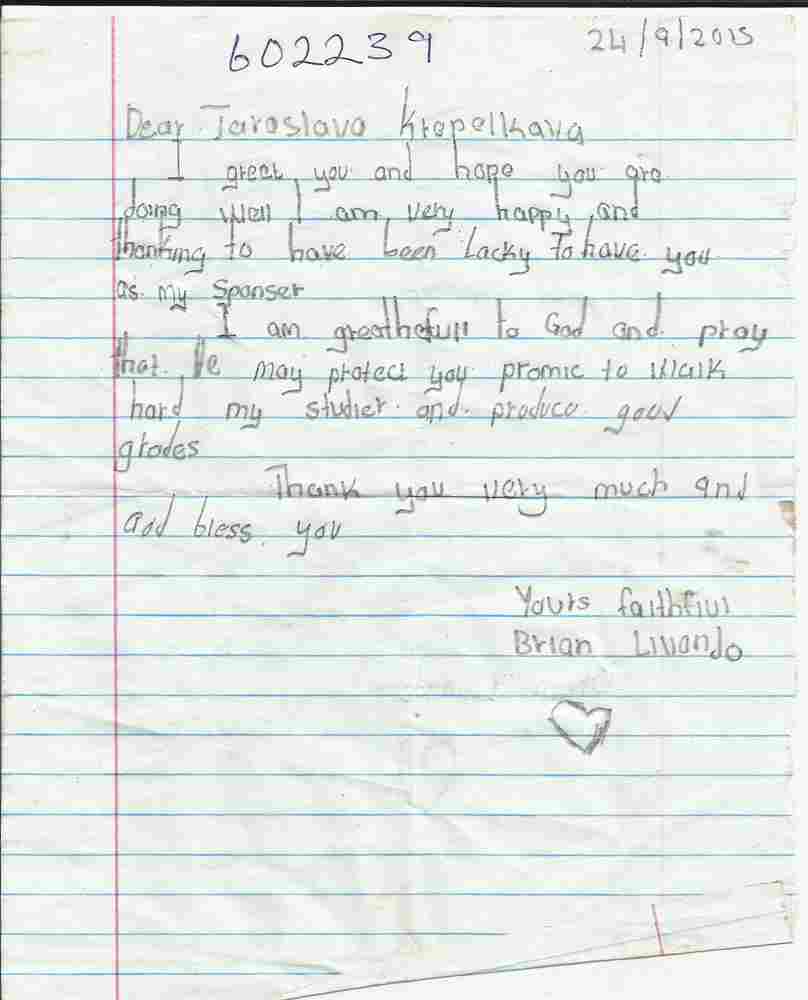 602239
24/9/2015
Dear Jaroslava Krepelkava
I greet you and hope you are
doing well I am very happy and
thanking to have been lacky to have you
as my Sponser
I am greathefull to God and pray
that He may protect you promic to walk
hard my studier and produce good
grades
Thank you very much and
God bless you
Yours faithfiul
Brian Livondo